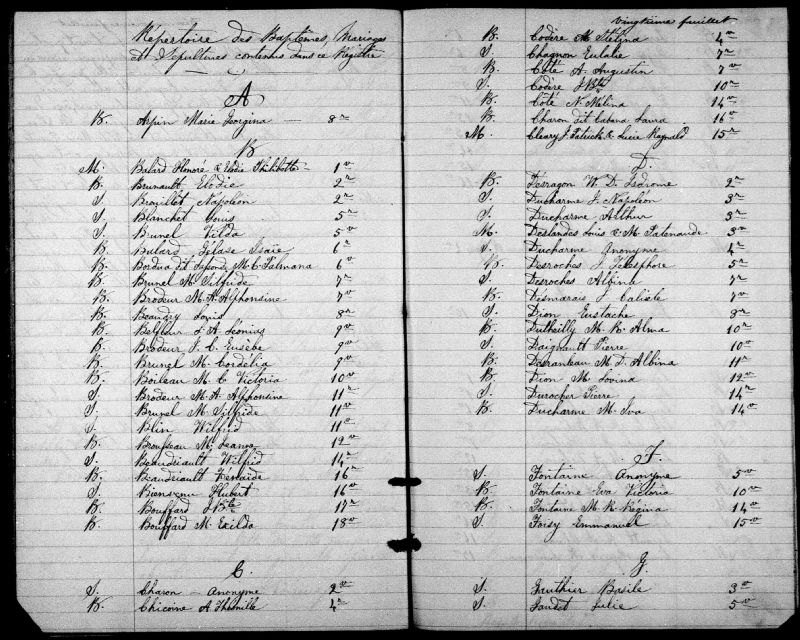 Répertoire des Baptêmes, Mariages
et Sépultures contenus dans ce Régistre
A
B. Arpin Marie Georgina — 8r
B
M. Balard Honoré & Elodie Philibotte - 1v
B. Brunault Elodie 2r
S. Brouillet Napoléon 2r
S. Blanchet Louis 5r
S. Brunel Exilda 5v
B. Balard Gélase Isaïe 6r
B. Bordua dit M. C. Palmana 6v
B. Brunel M. Tilfride 7r
B. Brodeur M. A. Alphonsine 7v
B. Beaudry Louis 8r
B. J. A. Léonias 9v
B. Brodeur J. C. Eusèbe 9v
B. Brunel M. Cordélia 9v
B. Boileau M. C. Victoria 10v
S. Brodeur M. A. Alphonsine 11r
S. Brunel M. Tilfride 11v
S. Blin Wilfrid 11v
B. Brousseau M. 12v
S. Beaudriault Wilfrid 14r
B. Beaudriault 16r
S. Bienvenu Hubert 16v
B. Bouffard J. Bte 17r
B. Bouffard M. Exilda 18v
C.
S. Charon — Anonyme 2v
B. Chicoine A. 4r
vingtième feuillet
B. Codère M. Stelina 4v
S. Chagnon Eulalie 7r
B. Côté A. Augustin 7v
S. Codère J. Bte 10r
B. Côté N. Mélina 14v
B. Charon dit Cabana Laura 16v
M. Cleary J. Patrick & Lucie Raynald 15r
D.
B. W. D. Isdrome 2r
S. Ducharme J. Napoléon 3r
S. Ducharme Arthur 3r
M. Deslandes Louis & M. Patenaude 3v
S. Ducharme Anonyme 4r
B. Desroches J. Télesphore 5r
S. Desroches Albina 7r
B. Desmarais J. Calisle 7v
S. Dion Eustache 8r
B. Dutheilly M. R. Alma 10r
S. Daignault Pierre 10v
B. Desranleau M. D. Albina 11r
B. Dion M. Lovina 12v
S. Durocher Pierre 14r
B. Ducharme M. Iva 14v
F.
S. Fontaine Anonyme 5v
B. Fontaine Eva Victoria 10v
B. Fontaine M. R. Régina 14v
S. Foisy Emmanuel 15v
G.
S. Gauthier Basile 3v
S. Gaudet Julie 5v